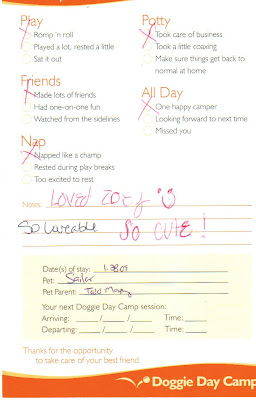 Play
Romp 'n roll
Played a lot, rested a little
Sat it out
Friends
Made lots of friends
Had one-on-one fun
Watched from the sidelines
Nap
Napped like a champ
Rested during play breaks
Too excited to rest
Potty
Took care of business
Took a little coaxing
Make sure things get back to
normal at home
All Day
One happy camper
Looking forward to next time
Missed you
Notes: LOVED ZOEY
So loveable SO CUTE!
Date(s) of stay:
Pet: Sailor
Pet Parent: Todd
Your next Doggie Day Camp session:
Arriving: / / Time:
Departing: / / Time:
Thanks for the opportunity
to take care of your best friend.
Doggie Day Camp